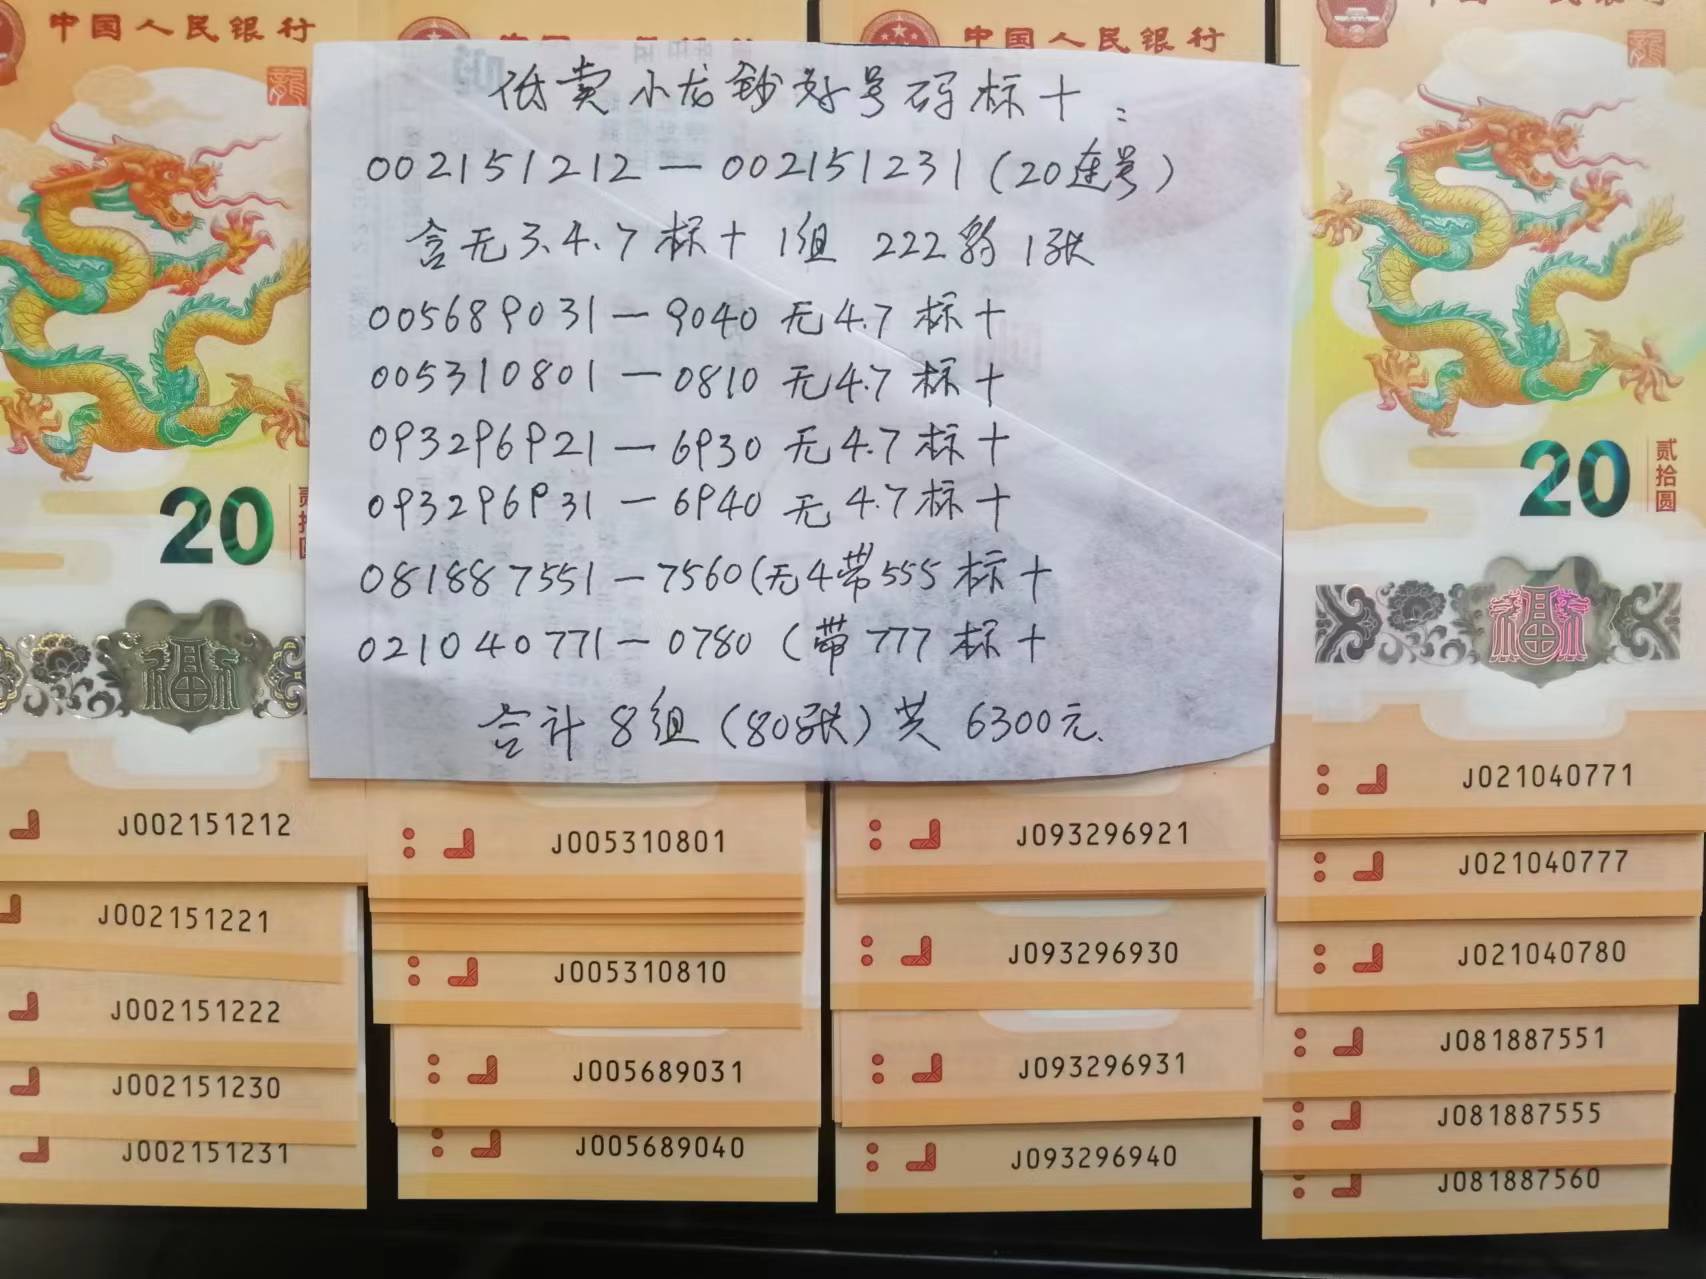 中国人民银行
中国人民银行
中国人民银行
龍
龍
低卖小龙钞好号码标十:
002151212—002151231(20连号)
含无3.4.7标十1组 222豹1张
005689031—9040 无4.7标十
005310801—0810 无4.7标十
093296921—6930 无4.7标十
093296931—6940 无4.7标十
081887551—7560(无4带555标十
021040771—0780(带777标十
合计8组(80张)共6300元.
20
20
贰拾圆
福
福
J002151212
J002151221
J002151222
J002151230
J002151231
J005310801
J005310810
J005689031
J005689040
J093296921
J093296930
J093296931
J093296940
J021040771
J021040777
J021040780
J081887551
J081887555
J081887560